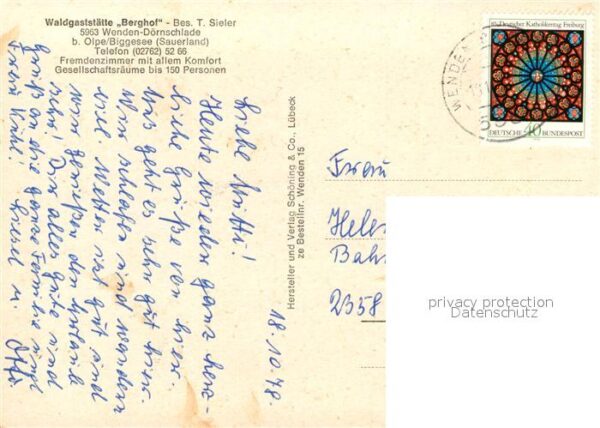 Waldgaststätte „Berghof" - Bes. T. Sieler
5963 Wenden-Dörnschlade
b. Olpe/Biggesee (Sauerland)
Telefon (02762) 52 66
Fremdenzimmer mit allem Komfort
Gesellschaftsräume bis 150 Personen
18.10.78.
Liebe Mutti!
Heute wieder ganz herz-
liche Grüße von hier.
Uns geht es sehr gut hier.
Wir schlafen und wandern
viel. Wetter ist gut und
wir genießen den Urlaub
sehr! Dir alles gute und
Grüße an die ganze Familie und
Frau
Liesel u. Otto.
Hersteller und Verlag Schöning & Co., Lübeck
ze Bestellnr. Wenden 15
85. Deutscher Katholikentag Freiburg
DEUTSCHE 40 BUNDESPOST
WENDEN
Frau
Hele
Bah
2358
privacy protection
Datenschutz